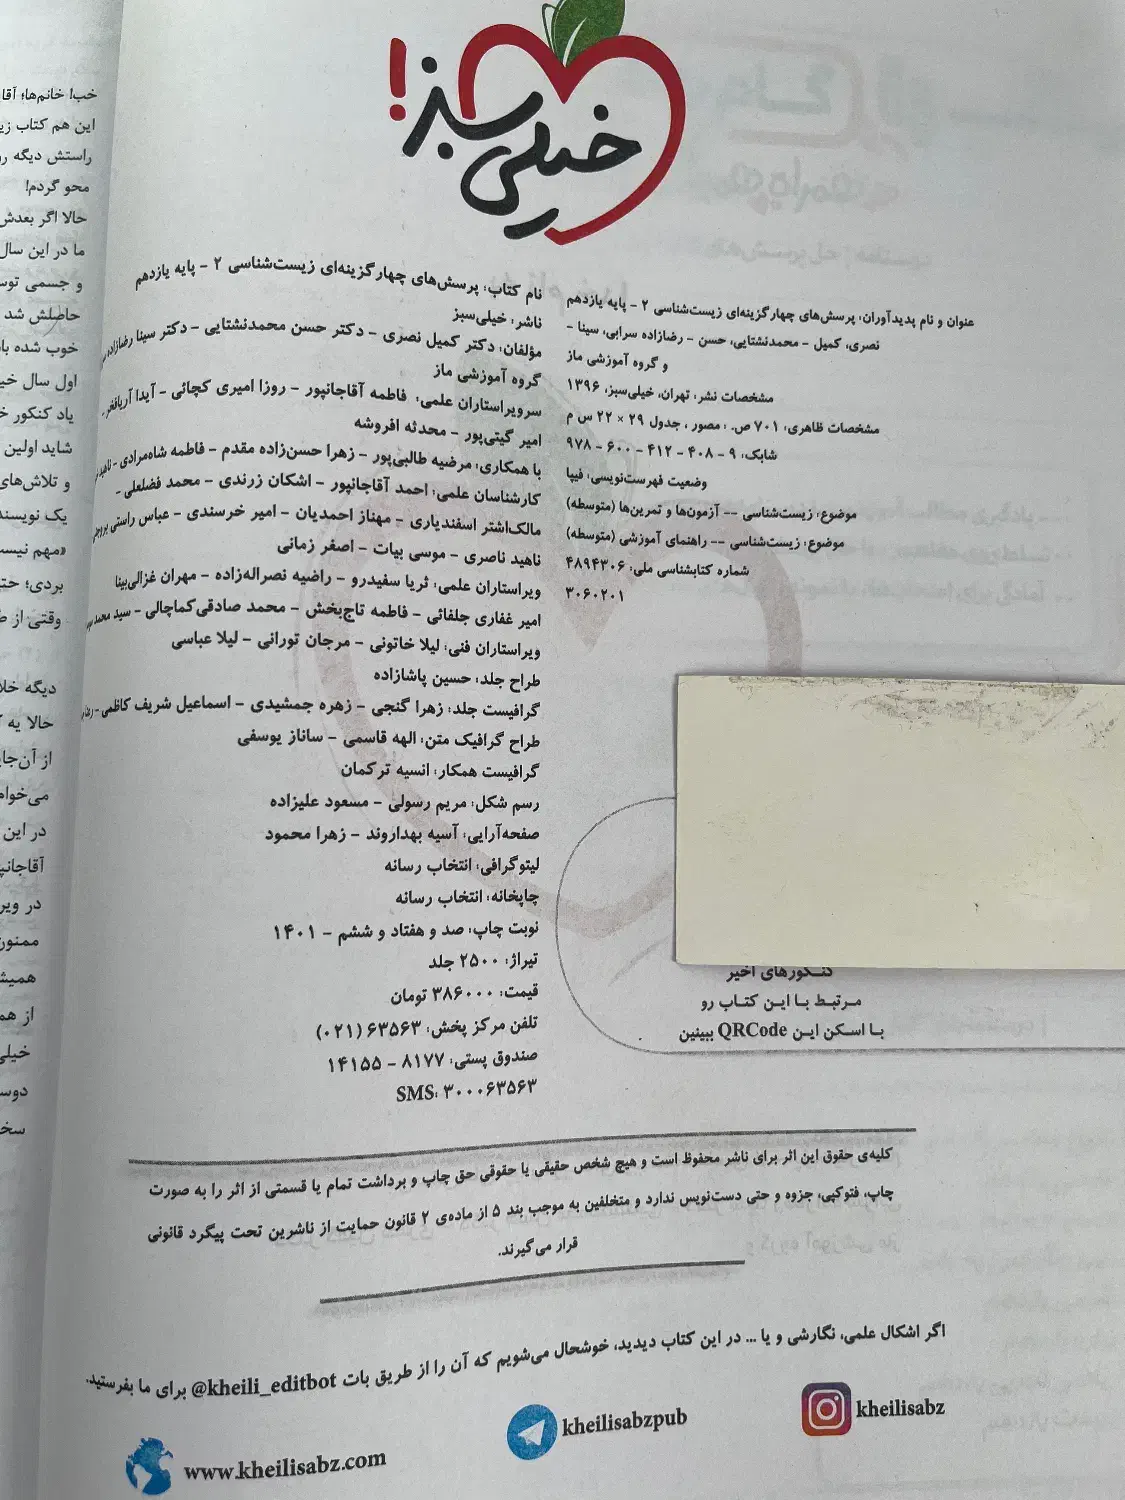 خیلی سبز!
عنوان و نام پدیدآوران: پرسش‌های چهارگزینه‌ای زیست‌شناسی ۲ - پایه یازدهم
نصری، کمیل - محمدنشتایی، حسن - رضازاده سرابی، سینا -
و گروه آموزشی ماز
مشخصات نشر: تهران، خیلی‌سبز، ۱۳۹۶
مشخصات ظاهری: ۷۰۱ ص. : مصور ، جدول ۲۹ × ۲۲ س م
شابک: ۹ - ۴۰۸ - ۴۱۲ - ۶۰۰ - ۹۷۸
وضعیت فهرست‌نویسی: فیپا
موضوع: زیست‌شناسی -- آزمون‌ها و تمرین‌ها (متوسطه)
موضوع: زیست‌شناسی -- راهنمای آموزشی (متوسطه)
شماره کتابشناسی ملی: ۴۸۹۴۳۰۶
۳۰۶۰۲۰۱
کنکورهای اخیر
مرتبط با این کتاب رو
با اسکن این QRCode ببینین
نام کتاب: پرسش‌های چهارگزینه‌ای زیست‌شناسی ۲ - پایه یازدهم
ناشر: خیلی‌سبز
مؤلفان: دکتر کمیل نصری - دکتر حسن محمدنشتایی - دکتر سینا رضازاده
گروه آموزشی ماز
سرویراستاران علمی: فاطمه آقاجانپور - روزا امیری کچائی - آیدا آریافخر -
امیر گیتی‌پور - محدثه افروشه
با همکاری: مرضیه طالبی‌پور - زهرا حسن‌زاده مقدم - فاطمه شاه‌مرادی -
کارشناسان علمی: احمد آقاجانپور - اشکان زرندی - محمد فضلعلی -
مالک‌اشتر اسفندیاری - مهناز احمدیان - امیر خرسندی - عباس راستی بروجنی
ناهید ناصری - موسی بیات - اصغر زمانی
ویراستاران علمی: ثریا سفیدرو - راضیه نصراله‌زاده - مهران غزالی‌بینا
امیر غفاری جلفائی - فاطمه تاج‌بخش - محمد صادقی‌کماچالی - سید محمد
ویراستاران فنی: لیلا خاتونی - مرجان تورانی - لیلا عباسی
طراح جلد: حسین پاشازاده
گرافیست جلد: زهرا گنجی - زهره جمشیدی - اسماعیل شریف کاظمی -
طراح گرافیک متن: الهه قاسمی - ساناز یوسفی
گرافیست همکار: انسیه ترکمان
رسم شکل: مریم رسولی - مسعود علیزاده
صفحه‌آرایی: آسیه بهداروند - زهرا محمود
لیتوگرافی: انتخاب رسانه
چاپخانه: انتخاب رسانه
نوبت چاپ: صد و هفتاد و ششم - ۱۴۰۱
تیراژ: ۲۵۰۰ جلد
قیمت: ۳۸۶۰۰۰ تومان
تلفن مرکز پخش: ۶۳۵۶۳ (۰۲۱)
صندوق پستی: ۸۱۷۷ - ۱۴۱۵۵
SMS: ۳۰۰۰۶۳۵۶۳
کلیه‌ی حقوق این اثر برای ناشر محفوظ است و هیچ شخص حقیقی یا حقوقی حق چاپ و برداشت تمام یا قسمتی از اثر را به صورت
چاپ، فتوکپی، جزوه و حتی دست‌نویس ندارد و متخلفین به موجب بند ۵ از ماده‌ی ۲ قانون حمایت از ناشرین تحت پیگرد قانونی
قرار می‌گیرند.
اگر اشکال علمی، نگارشی و یا ... در این کتاب دیدید، خوشحال می‌شویم که آن را از طریق بات @kheili_editbot برای ما بفرستید.
kheilisabz
kheilisabzpub
www.kheilisabz.com
خب! خانم‌ها؛ آقا
این هم کتاب
راستش دیگه
محو گردم!
حالا اگر بعدش
ما در این سال
و جسمی
حاصلش شد
خوب شده
اول سال
یاد کنکور
شاید اولین
و تلاش‌های
یک
«مهم
بردی؛
وقتی از
دیگه
حالا یه
از
در این
در
ممنون
از